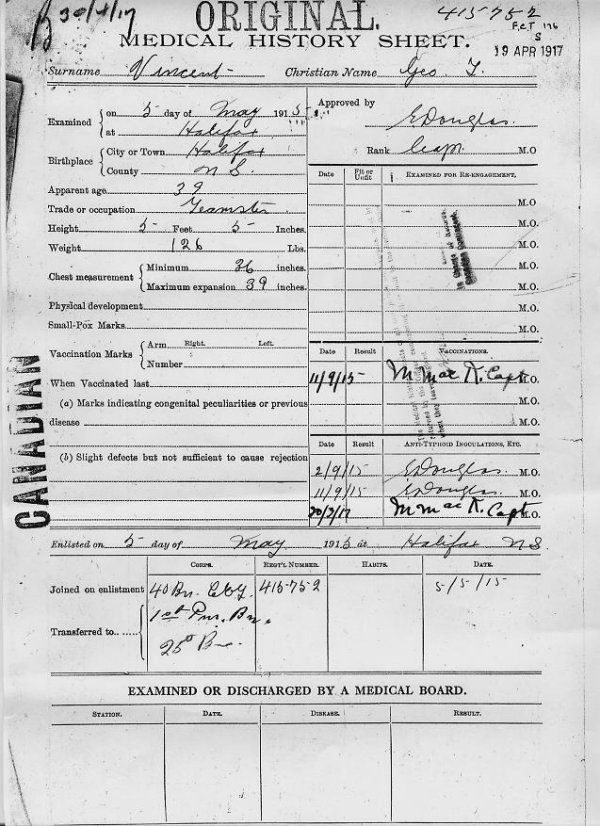 30/4/17
ORIGINAL.
415752
MEDICAL HISTORY SHEET.
19 APR 1917
Surname Vincent Christian Name Geo
Examined on 5 day of May 1915
at Halifax
Birthplace City or Town Halifax
County N S.
Apparent age 39
Trade or occupation Teamster
Height 5 Feet 5 Inches.
Weight 126 Lbs.
Chest measurement Minimum 36 inches.
Maximum expansion 39 inches.
Physical development
Small-Pox Marks
Vaccination Marks Arm Right. Left.
Number
When Vaccinated last
(a) Marks indicating congenital peculiarities or previous
disease
(b) Slight defects but not sufficient to cause rejection
CANADIAN
Approved by
E Douglas.
Rank Capt. M.O
Date Fit or Unfit Examined for Re-engagement.
M.O
M.O.
M.O.
M.O.
M.O.
M.O.
M.O.
Date Result Vaccinations.
11/9/15 M.O.
M.O.
M.O.
Date Result Anti-Typhoid Inoculations, Etc.
2/9/15 E Douglas. M.O.
11/9/15 E Douglas. M.O.
M.O.
Enlisted on 5 day of May 1915 at Halifax N.S.
Corps. Regt'l Number. Habits. Date.
Joined on enlistment 40 Bn. 415752 5/5/15
1st Pnr. Bn.
Transferred to
25th Bn.
EXAMINED OR DISCHARGED BY A MEDICAL BOARD.
Station. Date. Disease. Result.